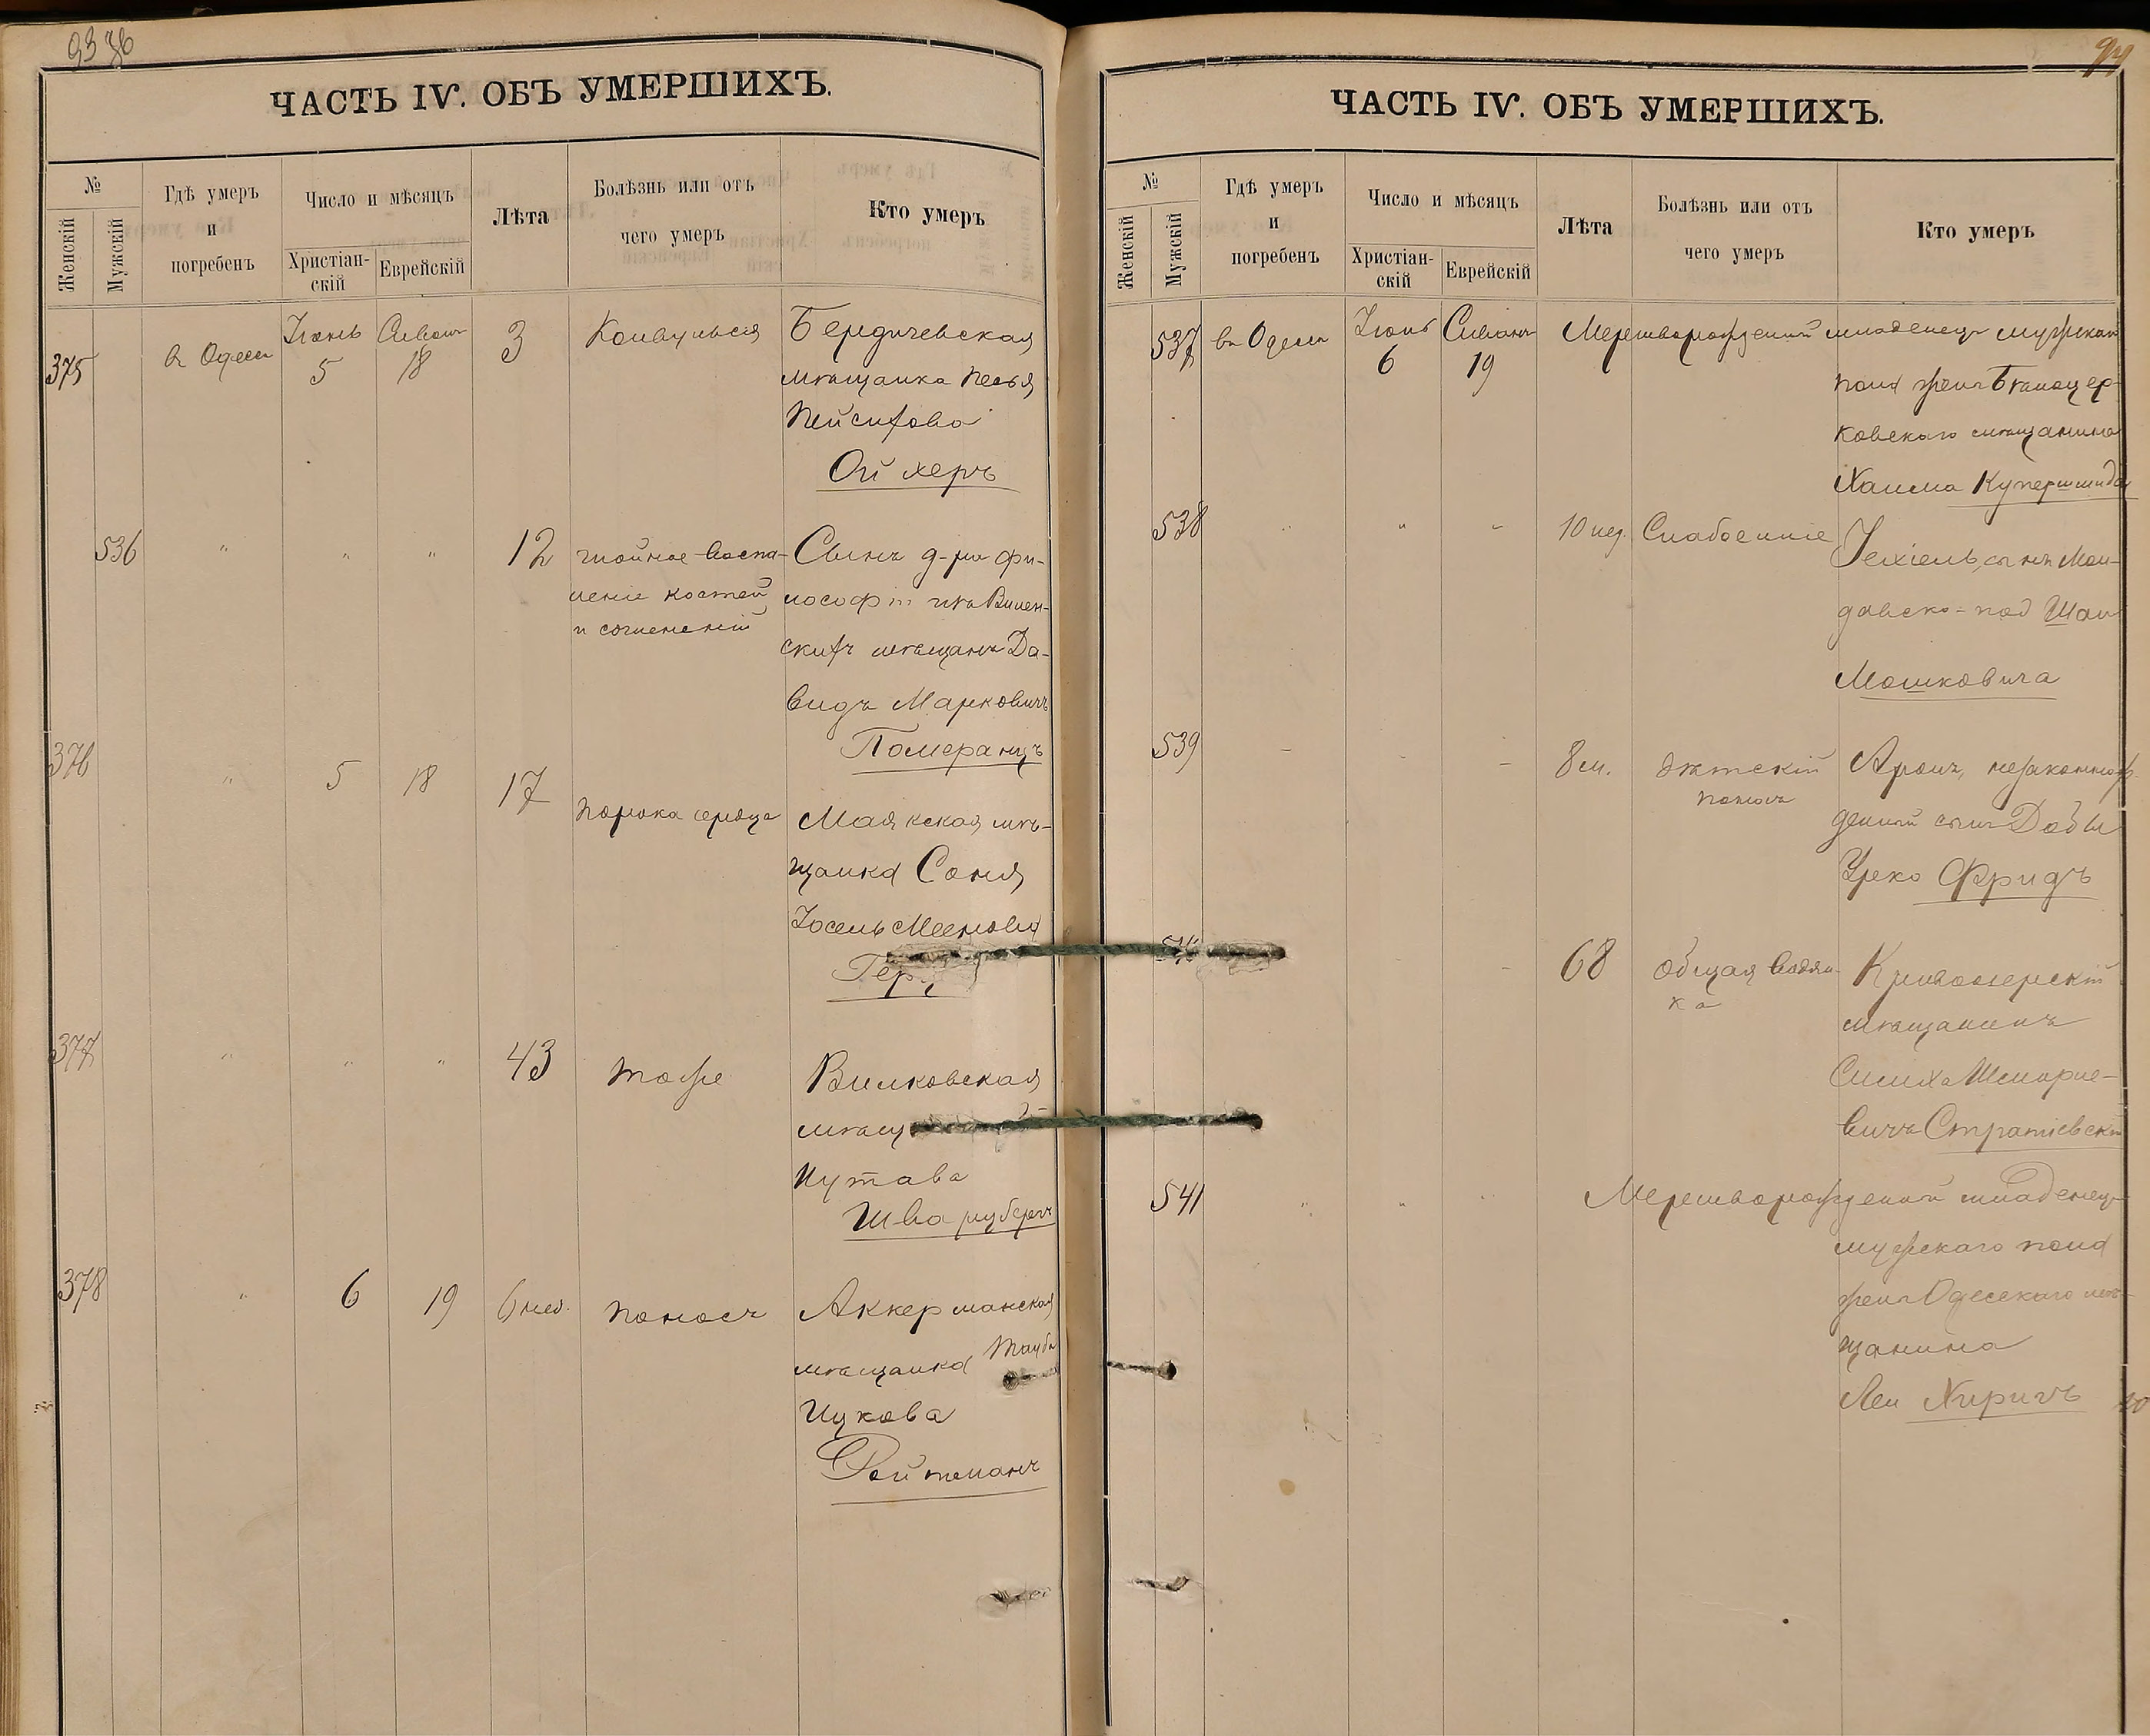 93 об
ЧАСТЬ IV. ОБЪ УМЕРШИХЪ.
№
Женскій
Мужскій
Гдѣ умеръ
и
погребенъ
Число и мѣсяцъ
Христіан-
скій
Еврейскій
Лѣта
Болѣзнь или отъ
чего умеръ
Кто умеръ
375
въ Одессѣ
Іюнь
5
Сиванъ
18
3
Конвульсія
Бердичевская
мѣщанка Песья
Пейсихова
Ойхеръ
536
" " "
12
гнойное воспа-
леніе костей
и сочлененій
Сынъ д-ра фи-
лософіи изъ Вилен-
скихъ мѣщанъ Да-
видъ Марковичъ
Померанцъ
376
"
5
18
17
порокъ сердца
Маякская мѣ-
щанка Соня
Гер
377
" " "
43
тоже
Вилковская
мѣщ
Шварцбергъ
378
"
6
19
6 нед.
поносъ
Аккерманская
мѣщанка Тауба
Ицкова
Ройтманъ
94
ЧАСТЬ IV. ОБЪ УМЕРШИХЪ.
№
Женскій
Мужскій
Гдѣ умеръ
и
погребенъ
Число и мѣсяцъ
Христіан-
скій
Еврейскій
Лѣта
Болѣзнь или отъ
чего умеръ
Кто умеръ
537
въ Одессѣ
Іюнь
6
Сиванъ
19
Мертворожденный младенецъ мужскаго
пола жены Бѣлоцер-
ковскаго мѣщанина
Хаима Купершмида
538
" " "
10 нед.
Слабосиліе
Іехіель, сынъ Мол-
давско-под Шаи
Мошковича
539
8 м.
дѣтскій
поносъ
Аронъ, незаконнож-
денный сынъ Добы
Фридъ
68
общая водян-
ка
Кривоозерскій
мѣщанинъ
Симха Шмарие-
вичъ Стратіевскій
541
" " "
Мертворожденный младенецъ
мужскаго пола
жены Одесскаго мѣ-
щанина